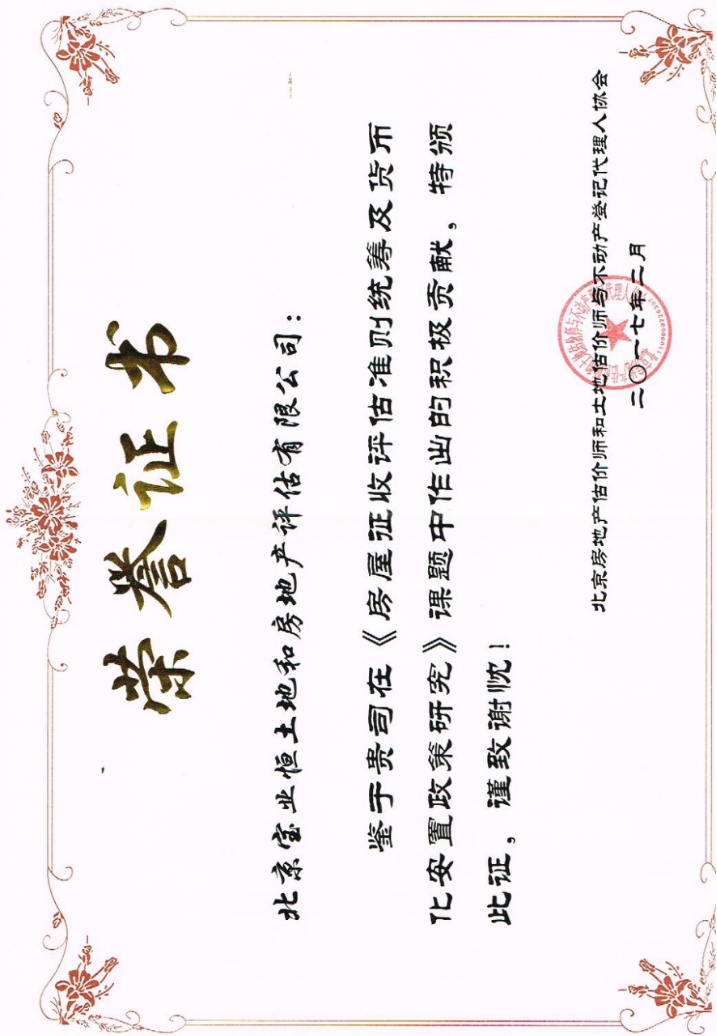 荣誉证书
北京宝业恒土地和房地产评估有限公司：
鉴于贵司在《房屋征收评估准则统筹及货币
化安置政策研究》课题中作出的积极贡献，特颁
此证，谨致谢忱！
北京房地产估价师和土地估价师与不动产登记代理人协会
二〇一七年二月